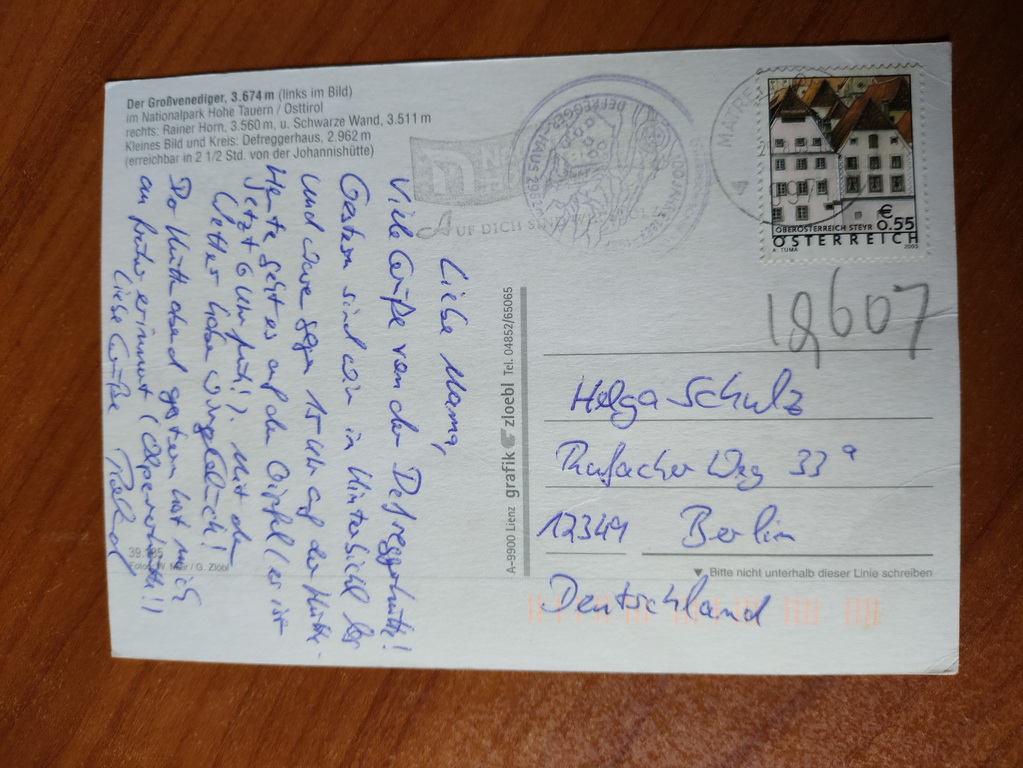 Der Großvenediger, 3.674 m (links im Bild)
im Nationalpark Hohe Tauern / Osttirol
rechts: Rainer Horn, 3.560 m, u. Schwarze Wand, 3.511 m
Kleines Bild und Kreis: Defreggerhaus, 2.962 m
(erreichbar in 2 1/2 Std. von der Johannishütte)
Liebe Mama,
viele Grüße von der Defreggerhütte!
Gestern sind wir in Hinterbichl los
und waren gegen 15 Uhr auf der Hütte.
Heute geht es auf den Gipfel (es ist
jetzt 6 Uhr früh!). Mit dem
Wetter haben wir Glück!
Der Hüttenabend gestern hat mich
an früher erinnert (Alpenvereinshütte!!)
Liebe Grüße
39.185
Fotos: W. Mair / G. Zlöbl
A-9900 Lienz grafik zloebl Tel. 04852/65065
AUF DICH
DEFREGGER-HAUS 2962
MATREI
€ 0.55
OBERÖSTERREICH STEYR
ÖSTERREICH
A. TUMA 2003
12607
Helga Schulz
Rufacher Weg 33a
12349 Berlin
Bitte nicht unterhalb dieser Linie schreiben
Deutschland